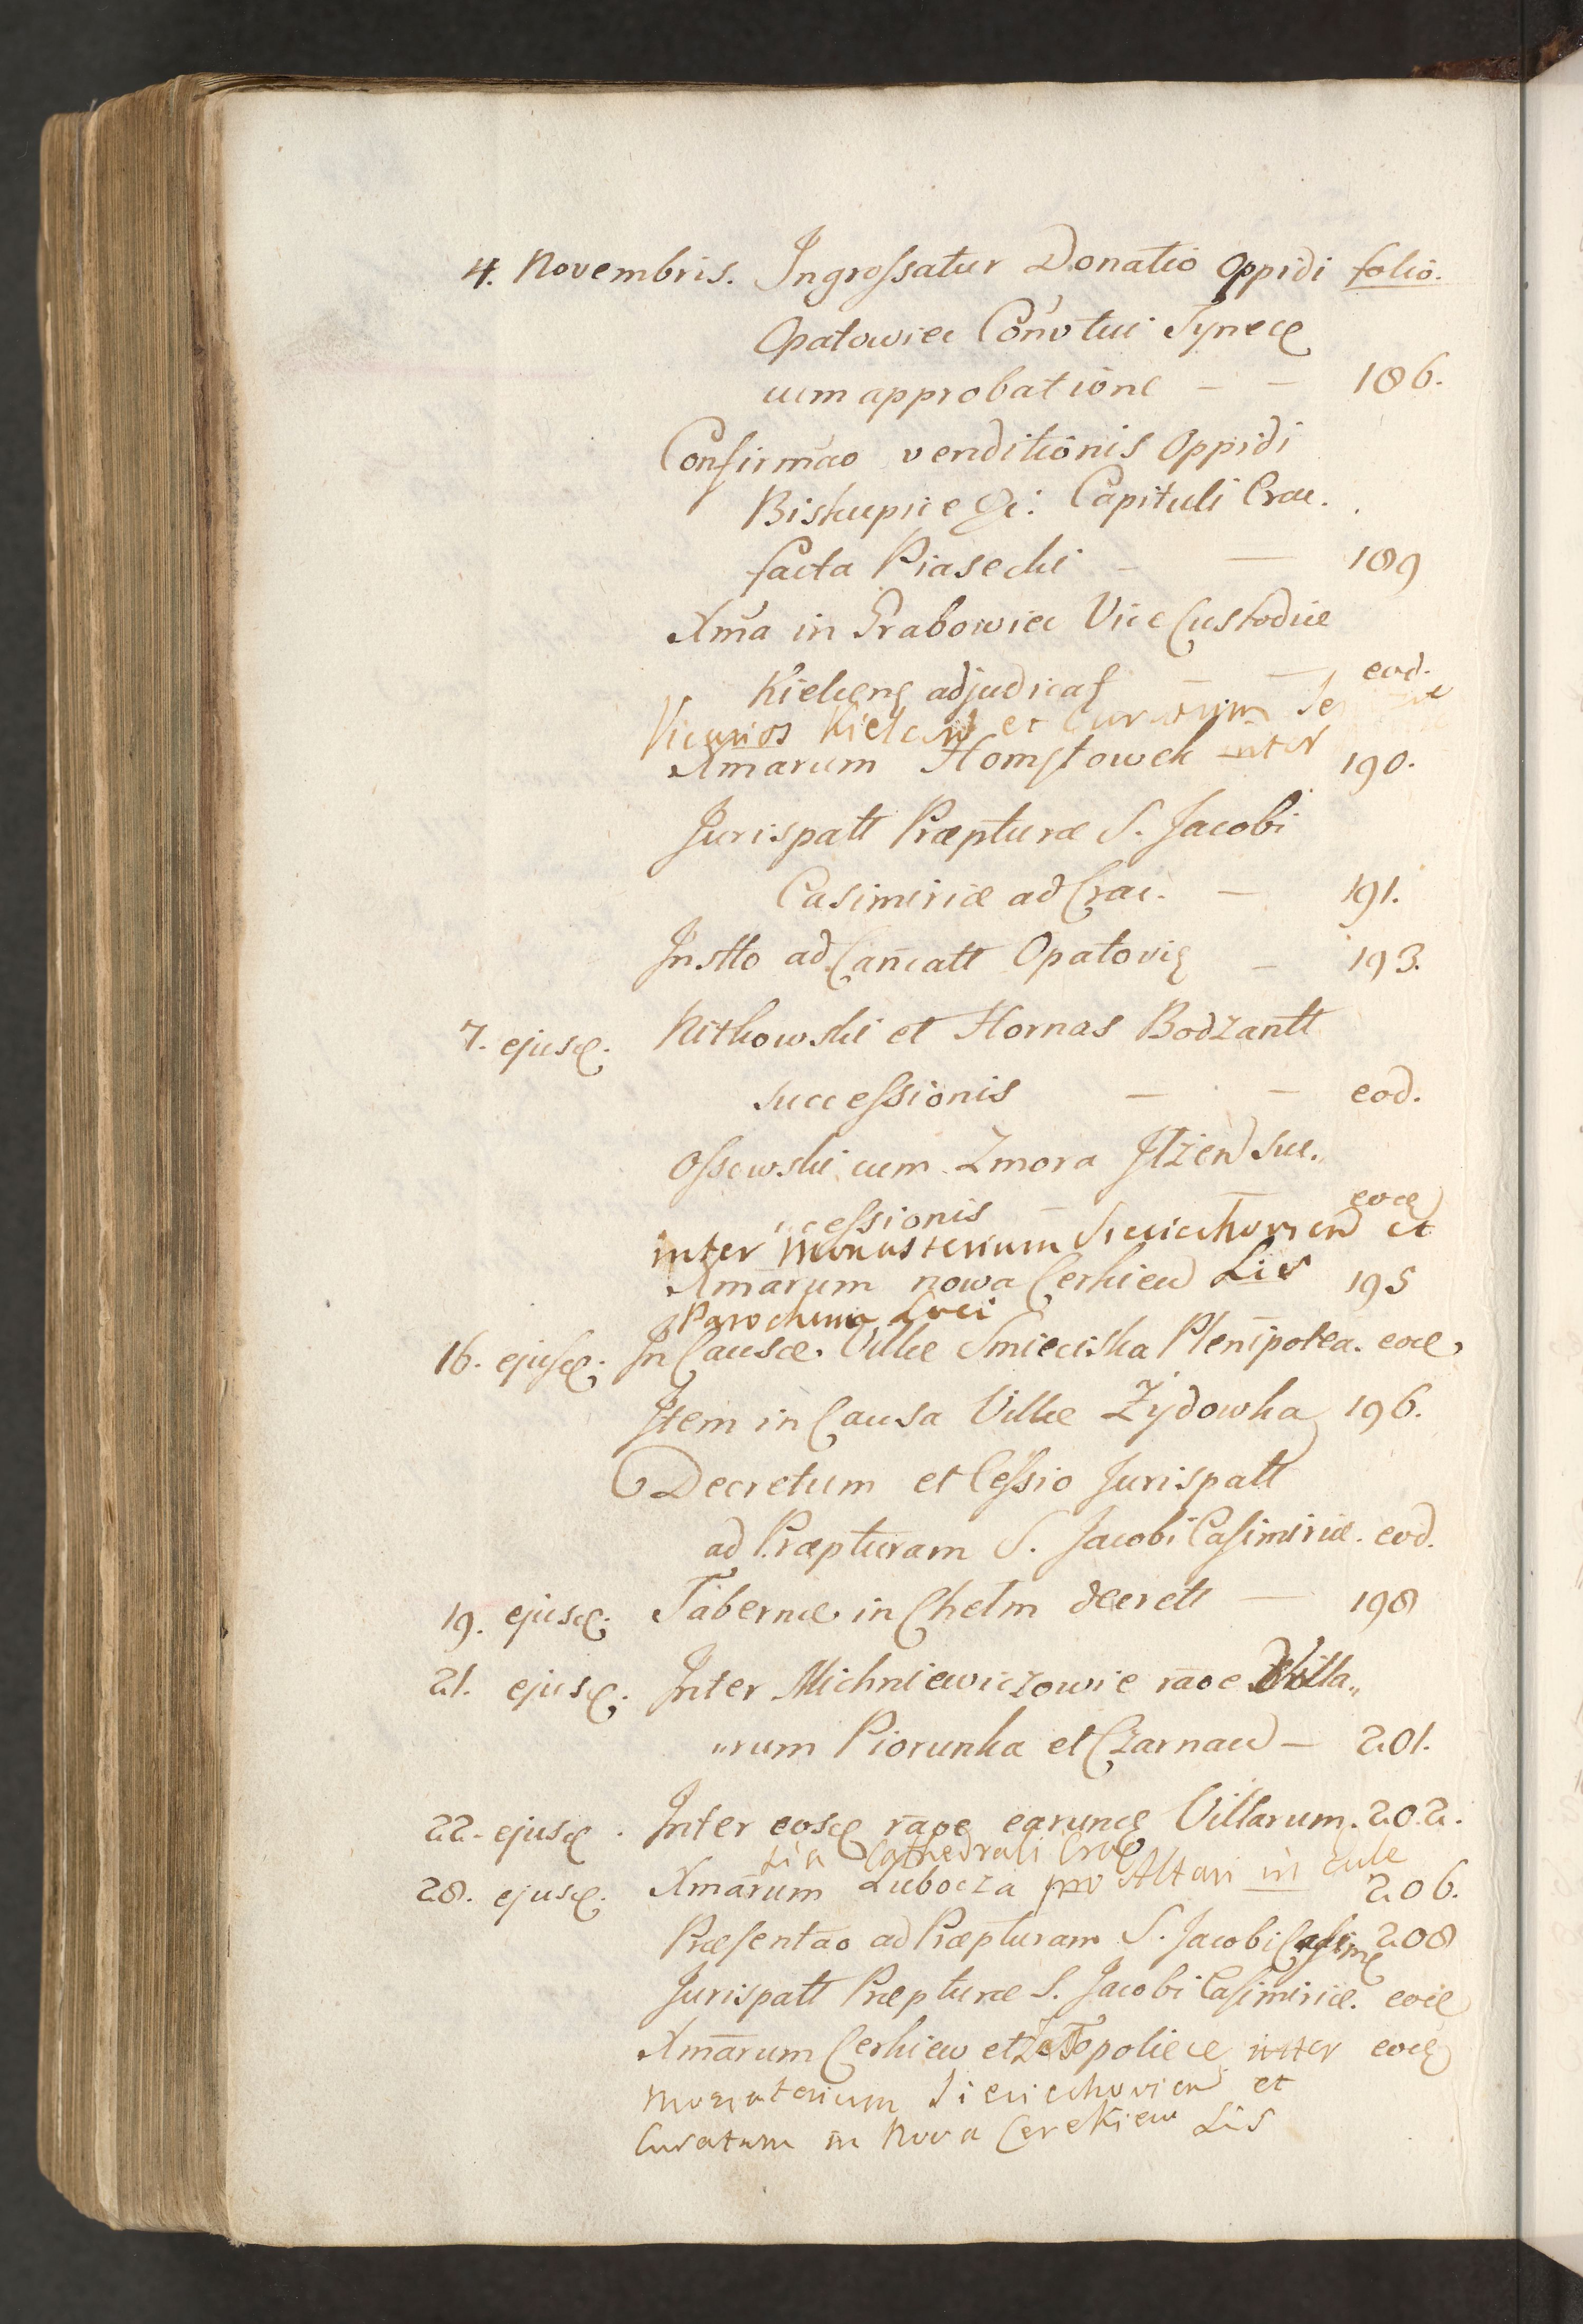 4. Novembris. Ingrossatur Donatio Oppidi folio.
Opatowiec Convtui Tynec
cum approbatione – – 186.
Confirmao venditionis Oppidi
Biskupice &c: Capituli Crac.
facta Piasecki – – 189
Xma in Grabowiec Vice Custodiæ
Kielcens adjudicat – – eod.
Vicarios Kielcen et Curatum
Xmarum Homstowek inter 190.
Jurispatt Præpturæ S. Jacobi
Casimiriæ ad Crac. – 191.
Instto ad Cancatt Opatovi – 193.
7. ejusd. Nitkowski et Hornas Bodzantt
successionis – – eod.
Ossowski cum Zmora Ilzen suc„
cessionis – eod
inter Monasterium Sieciechovien et
Xmarum nowa Cerkiew Lis 195
Parochum Loci
16. ejusd. In Causa Villæ Smieciska Plenipotea. eod.
Item in Causa Villæ Żydowka 196.
Decretum et Cessio Jurispatt
ad Præpturam S. Jacobi Casimiriæ. eod.
19. ejusd. Tabernæ in Chelm decrett – 198
21. ejusd. Inter Michniewiczowie raoe Villa„
„rum Piorunka et Czarnaw – 201.
22. ejusd. Inter eosd raoe earund Villarum. 202.
Lis Cathedrali Crac
28. ejusd. Xmarum Lubocza pro Altari in 206.
Præsentao ad Præpturam S. Jacobi Casim 208
Jurispatt Præpturæ S. Jacobi Casimiriæ. eod
Xmarum Cerkiew et Topolice inter eod
Monasterium Sieciechovien et
Curatum in Nova Cerekiew Lis